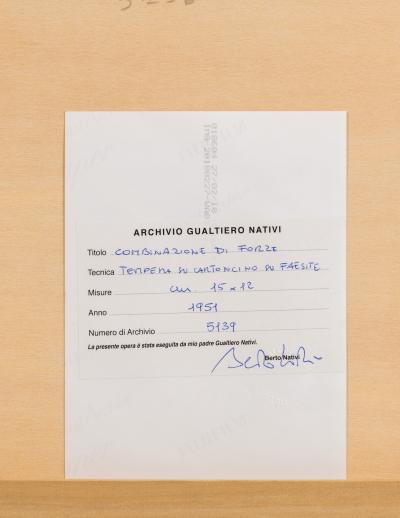 ARCHIVIO GUALTIERO NATIVI
Titolo COMBINAZIONE DI FORZE
Tecnica TEMPERA SU CARTONCINO SU FAESITE
Misure cm. 15 x 12
Anno 1951
Numero di Archivio 5139
La presente opera è stata eseguita da mio padre Gualtiero Nativi.
Berto Nativi